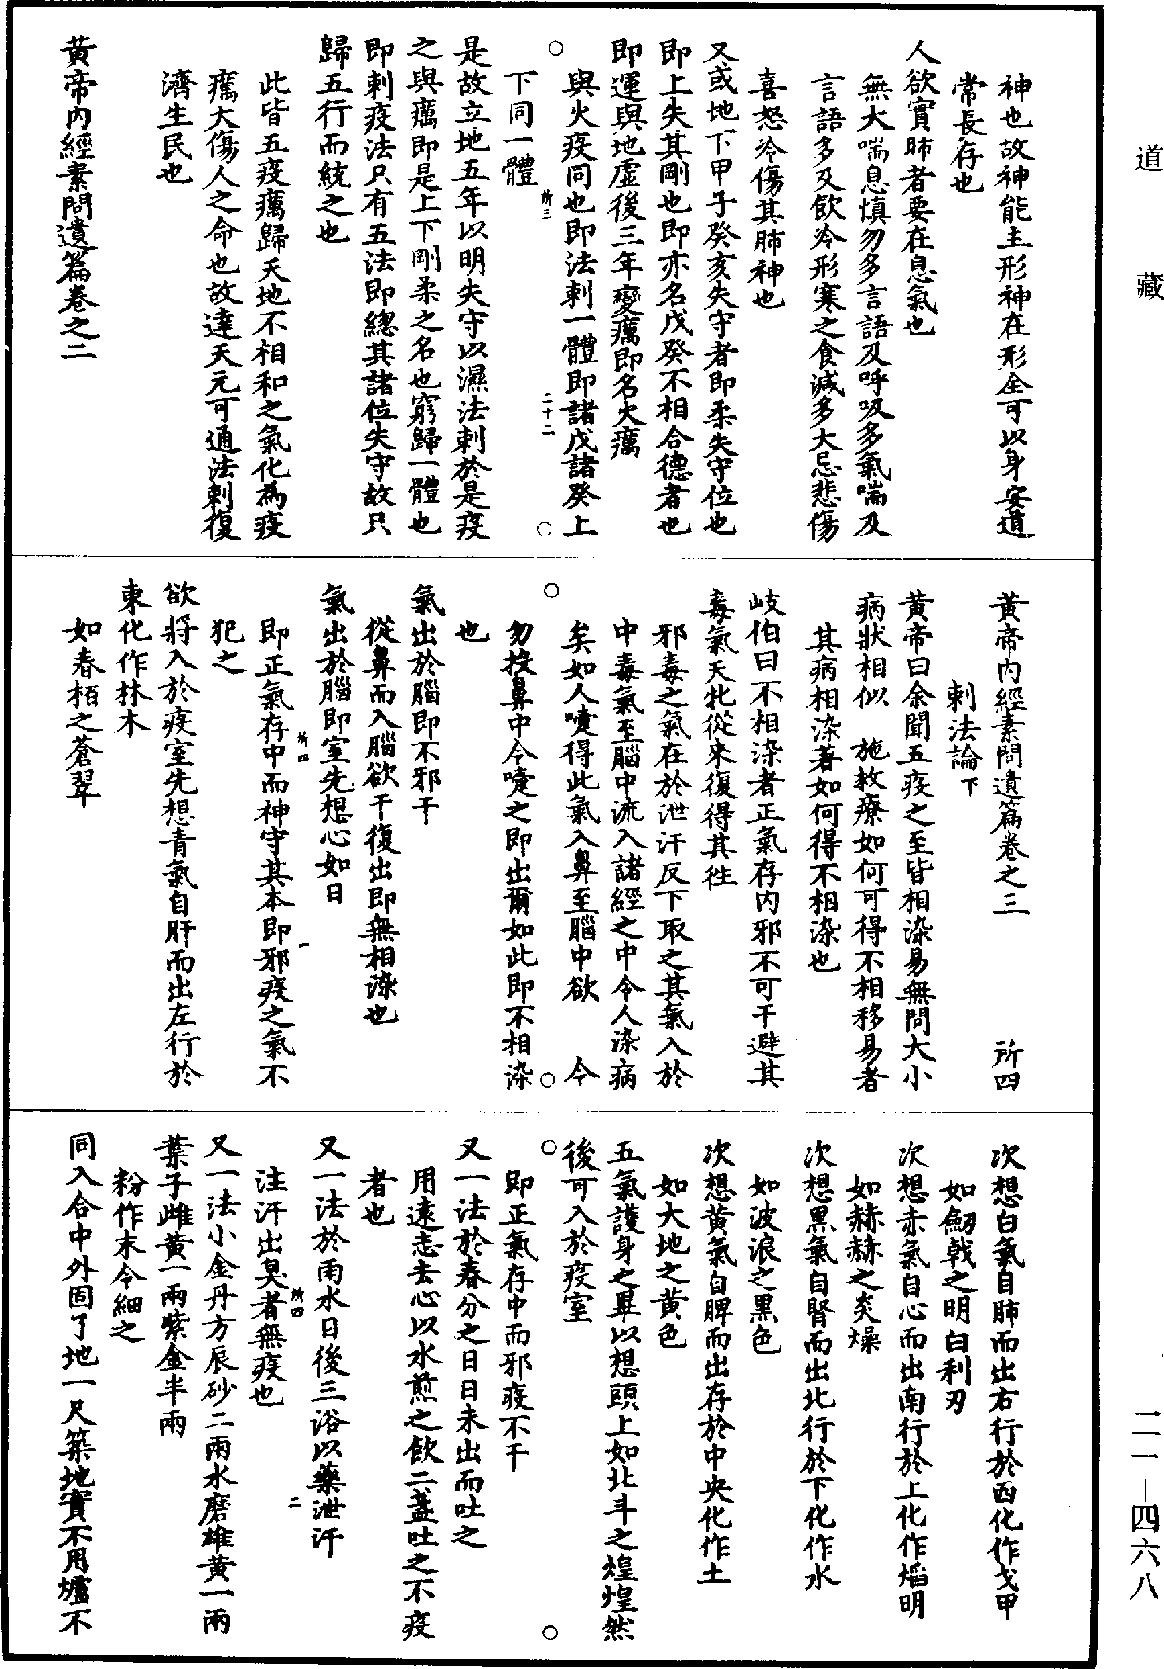 道藏
二一—四六八
神也故神能主形神在形全可以身安道
常長存也
人欲實肺者要在息氣也
無大喘息慎勿多言語及呼吸多氣喘及
言語多及飲冷形寒之食減多大忌悲傷
喜怒冷傷其肺神也
又或地下甲子癸亥失守者即柔失守位也
即上失其剛也即亦名戊癸不相合德者也
即運與地虛後三年變癘即名火癘
與火疫同也即法刺一體即諸戊諸癸上
下同一體
所三
二十二
是故立地五年以明失守以濕法刺於是疫
之與癘即是上下剛柔之名也窮歸一體也
即刺疫法只有五法即總其諸位失守故只
歸五行而統之也
此皆五疫癘歸天地不相和之氣化為疫
癘大傷人之命也故達天元可通法刺復
濟生民也
黃帝內經素問遺篇卷之二
黃帝內經素問遺篇卷之三
所四
刺法論下
黃帝曰余聞五疫之至皆相染易無問大小
病狀相似 施救療如何可得不相移易者
其病相染著如何得不相染也
岐伯曰不相染者正氣存內邪不可干避其
毒氣天牝從來復得其往
邪毒之氣在於泄汗反下取之其氣入於
中毒氣至腦中流入諸經之中令人染病
矣如人嚏得此氣入鼻至腦中欲 今
勿投鼻中令嚏之即出爾如此即不相染
也
氣出於腦即不邪干
從鼻而入腦欲干復出即無相染也
氣出於腦即室先想心如日
所四
一
即正氣存中而神守其本即邪疫之氣不
犯之
欲將入於疫室先想青氣自肝而出左行於
東化作林木
如春栢之蒼翠
次想白氣自肺而出右行於西化作戈甲
如劒戟之明白利刃
次想赤氣自心而出南行於上化作焰明
如赫赫之炎燥
次想黑氣自腎而出北行於下化作水
如波浪之黑色
次想黃氣自脾而出存於中央化作土
如大地之黃色
五氣護身之畢以想頭上如北斗之煌煌然
後可入於疫室
即正氣存中而邪疫不干
又一法於春分之日日未出而吐之
用遠志去心以水煎之飲二盞吐之不疫
者也
又一法於雨水日後三浴以藥泄汗
所四
二
注汗出臭者無疫也
又一法小金丹方辰砂二兩水磨雄黃一兩
葉子雌黃一兩紫金半兩
粉作末令細之
同入合中外固了地一尺築地實不用爐不